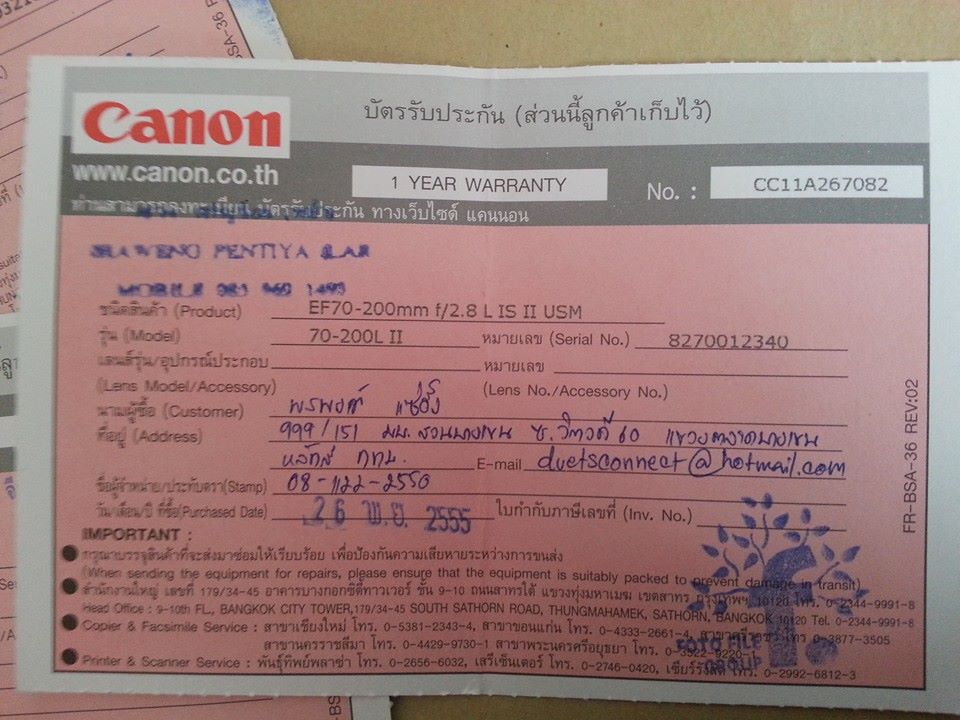 Canon
บัตรรับประกัน (ส่วนนี้ลูกค้าเก็บไว้)
www.canon.co.th
1 YEAR WARRANTY
No. : CC11A267082
ท่านสามารถลงทะเบียน บัตรรับประกัน ทางเว็บไซด์ แคนนอน
PENTIYA
MOBILE 081
ชนิดสินค้า (Product) EF70-200mm f/2.8 L IS II USM
รุ่น (Model) 70-200L II หมายเลข (Serial No.) 8270012340
เลนส์รุ่น/อุปกรณ์ประกอบ หมายเลข
(Lens Model/Accessory) (Lens No./Accessory No.)
นามผู้ซื้อ (Customer) พรพงศ์ แซ่ฮึ้ง
ที่อยู่ (Address) 999/151 มบ. สวนบางเขน ซ. วิภาวดี 60 แขวงตลาดบางเขน
หลักสี่ กทม. E-mail duetsconnect@hotmail.com
ชื่อผู้จำหน่าย/ประทับตรา(Stamp) 08-1122-2550
วัน/เดือน/ปี ที่ซื้อ(Purchased Date) 26 พ.ย. 2555 ใบกำกับภาษีเลขที่ (Inv. No.)
IMPORTANT :
กรุณาบรรจุสินค้าที่จะส่งมาซ่อมให้เรียบร้อย เพื่อป้องกันความเสียหายระหว่างการขนส่ง
(When sending the equipment for repairs, please ensure that the equipment is suitably packed to prevent damage in transit)
สำนักงานใหญ่ เลขที่ 179/34-45 อาคารบางกอกซิตี้ทาวเวอร์ ชั้น 9-10 ถนนสาทรใต้ แขวงทุ่งมหาเมฆ เขตสาทร กรุงเทพฯ 10120 โทร. 0-2344-9991-8
Head Office : 9-10th FL., BANGKOK CITY TOWER,179/34-45 SOUTH SATHORN ROAD, THUNGMAHAMEK, SATHORN, BANGKOK 10120 Tel. 0-2344-9991-8
Copier & Facsimile Service : สาขาเชียงใหม่ โทร. 0-5381-2343-4, สาขาขอนแก่น โทร. 0-4333-2661-4, สาขาศรีราชา โทร. 0-3877-3505
สาขานครราชสีมา โทร. 0-4429-9730-1 สาขาพระนครศรีอยุธยา โทร. 0-3522-9220-1
Printer & Scanner Service : พันธุ์ทิพย์พลาซ่า โทร. 0-2656-6032, เสรีเซ็นเตอร์ โทร. 0-2746-0420, เซียร์รังสิต โทร. 0-2992-6812-3
FOTO FILE
GROUP
FR-BSA-36 REV:02